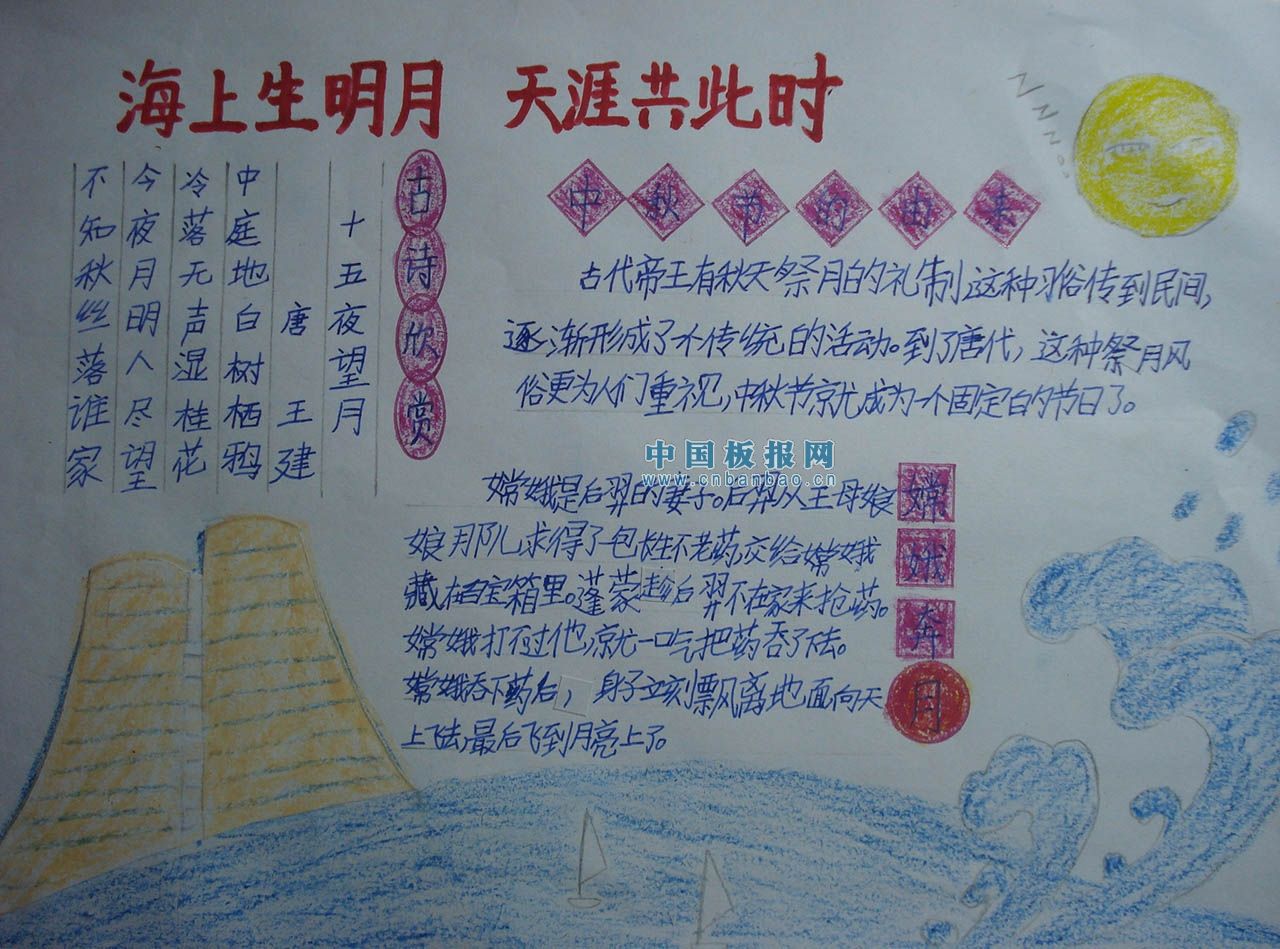 海上生明月 天涯共此时
古诗欣赏
十五夜望月
唐 王建
中庭地白树栖鸦
冷落无声湿桂花
今夜月明人尽望
不知秋丝落谁家
中秋节的由来
古代帝王有秋天祭月的礼制,这种习俗传到民间,
逐渐形成了不传统的活动。到了唐代,这种祭月风
俗更为人们重视,中秋节就成为一个固定的节日了。
中国板报网
www.cnbanbao.cn
嫦娥奔月
嫦娥是后羿的妻子。后羿从王母娘
娘那儿求得了包长生不老药,交给嫦娥
藏在百宝箱里。蓬蒙趁后羿不在家来抢药。
嫦娥打不过他,就一口气把药吞了下去。
嫦娥吞下药后,身子立刻飘风离地面向天
上飞去,最后飞到月亮上了。